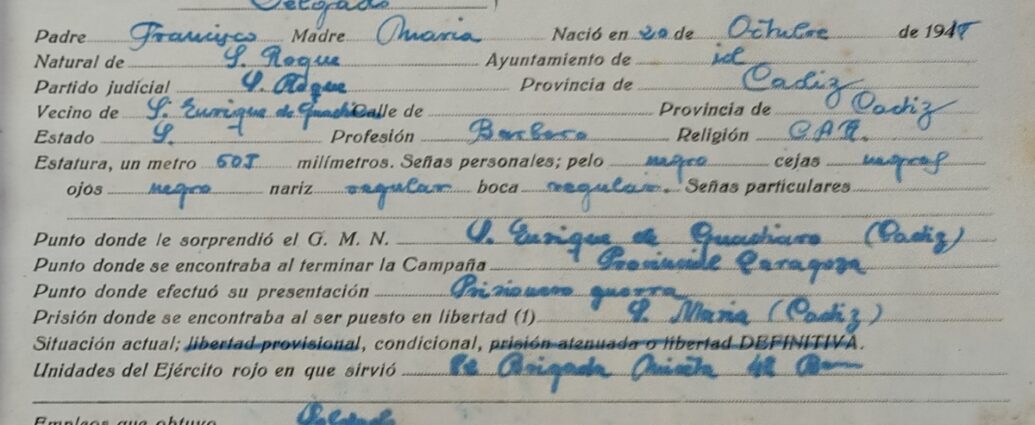 Delgado
Padre Francisco Madre Maria Nació en 20 de Octubre de 191
Natural de S. Roque Ayuntamiento de id
Partido judicial S. Roque Provincia de Cadiz
Vecino de S. Enrique de Guadiaro Calle de Provincia de Cadiz
Estado S. Profesión Barbero Religión C.A.R.
Estatura, un metro 605 milímetros. Señas personales; pelo negro cejas negras
ojos negro nariz regular boca regular. Señas particulares
Punto donde le sorprendió el G. M. N. S. Enrique de Guadiaro (Cadiz)
Punto donde se encontraba al terminar la Campaña Zaragoza
Punto donde efectuó su presentación Prisionero guerra
Prisión donde se encontraba al ser puesto en libertad (1) S. Maria (Cadiz)
Situación actual; libertad provisional, condicional, prisión atenuada o libertad DEFINITIVA.
Unidades del Ejército rojo en que sirvió Brigada Mixta
Empleos que obtuvo Soldado